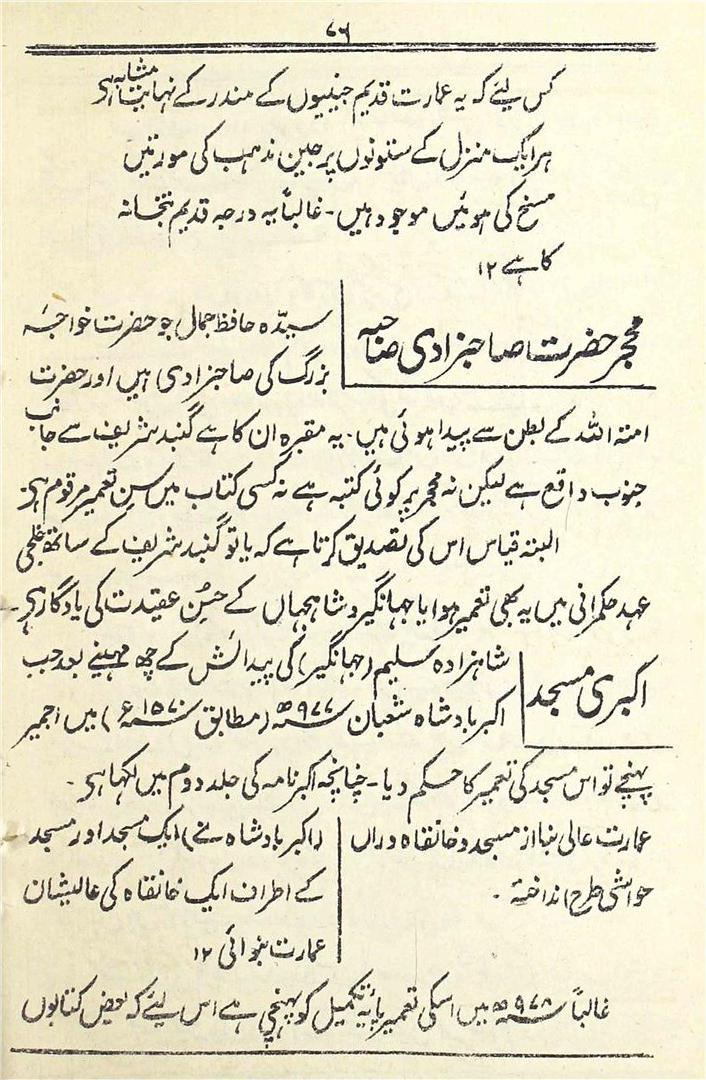 ۷۶
کس لئے کہ یہ عمارت قدیم جینیوں کے مندر کے نہایت مشابہ ہی
ہر ایک منزل کے ستونوں پر جین مذہب کی مورتیں
مسخ کی ہوئیں موجود ہیں۔ غالباً یہ درجہ قدیم بتخانہ
کا ہے ۱۲
محجر حضرت صاحبزادی صاحبہ
سیدہ حافظ جمال جو حضرت خواجہ
بزرگ کی صاحبزادی ہیں اور حضرت
امتہ اللہ کے بطن سے پیدا ہوئی ہیں۔ یہ مقبرہ ان کا ہے گنبد شریف سے جانب
جنوب واقع ہے لیکن نہ محجر پر کوئی کتبہ ہے نہ کسی کتاب میں سن تعمیر مرقوم ہی
البتہ قیاس اس کی تصدیق کرتا ہے کہ یا تو گنبد شریف کے ساتھ خلجی
عہد حکمرانی میں یہ بھی تعمیر ہوا یا جہانگیر و شاہجہاں کے حسن عقیدت کی یادگار ہی۔
اکبری مسجد
شاہزادہ سلیم (جہانگیر) کی پیدائش کے چھ مہینے بعد جب
اکبر بادشاہ شعبان ۹۷۷ھ (مطابق ۱۵۷۰ء) میں اجمیر
پہنچے تو اس مسجد کی تعمیر کا حکم دیا۔ چنانچہ اکبر نامہ کی جلد دوم میں لکھا ہی۔
عمارت عالی بنا از مسجد و خانقاہ دراں
حواشی طرح انداختہ۔
(اکبر بادشاہ نے) ایک مسجد اور مسجد
کے اطراف ایک خانقاہ کی عالیشان
عمارت بنوائی ۱۲
غالباً ۹۷۸ھ میں اسکی تعمیر پایۂ تکمیل کو پہنچی ہے اس لئے کہ بعض کتابوں